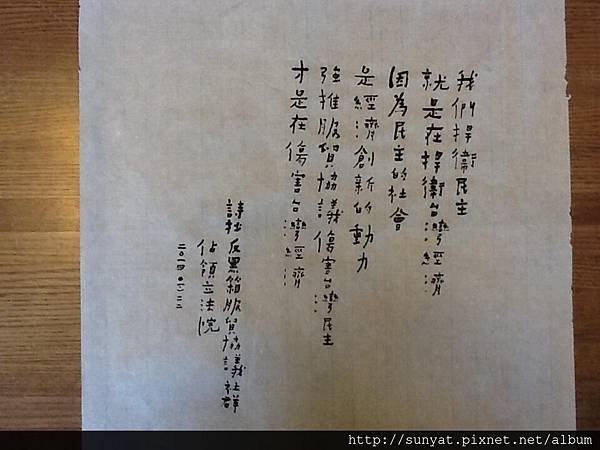 我們捍衛民主
就是在捍衛台灣經濟
因為民主的社會
是經濟創新的動力
強推服貿協議傷害台灣民主
才是在傷害台灣經濟
反黑箱服貿協議
佔領立法院
http://sunyat.pixnet.net/album